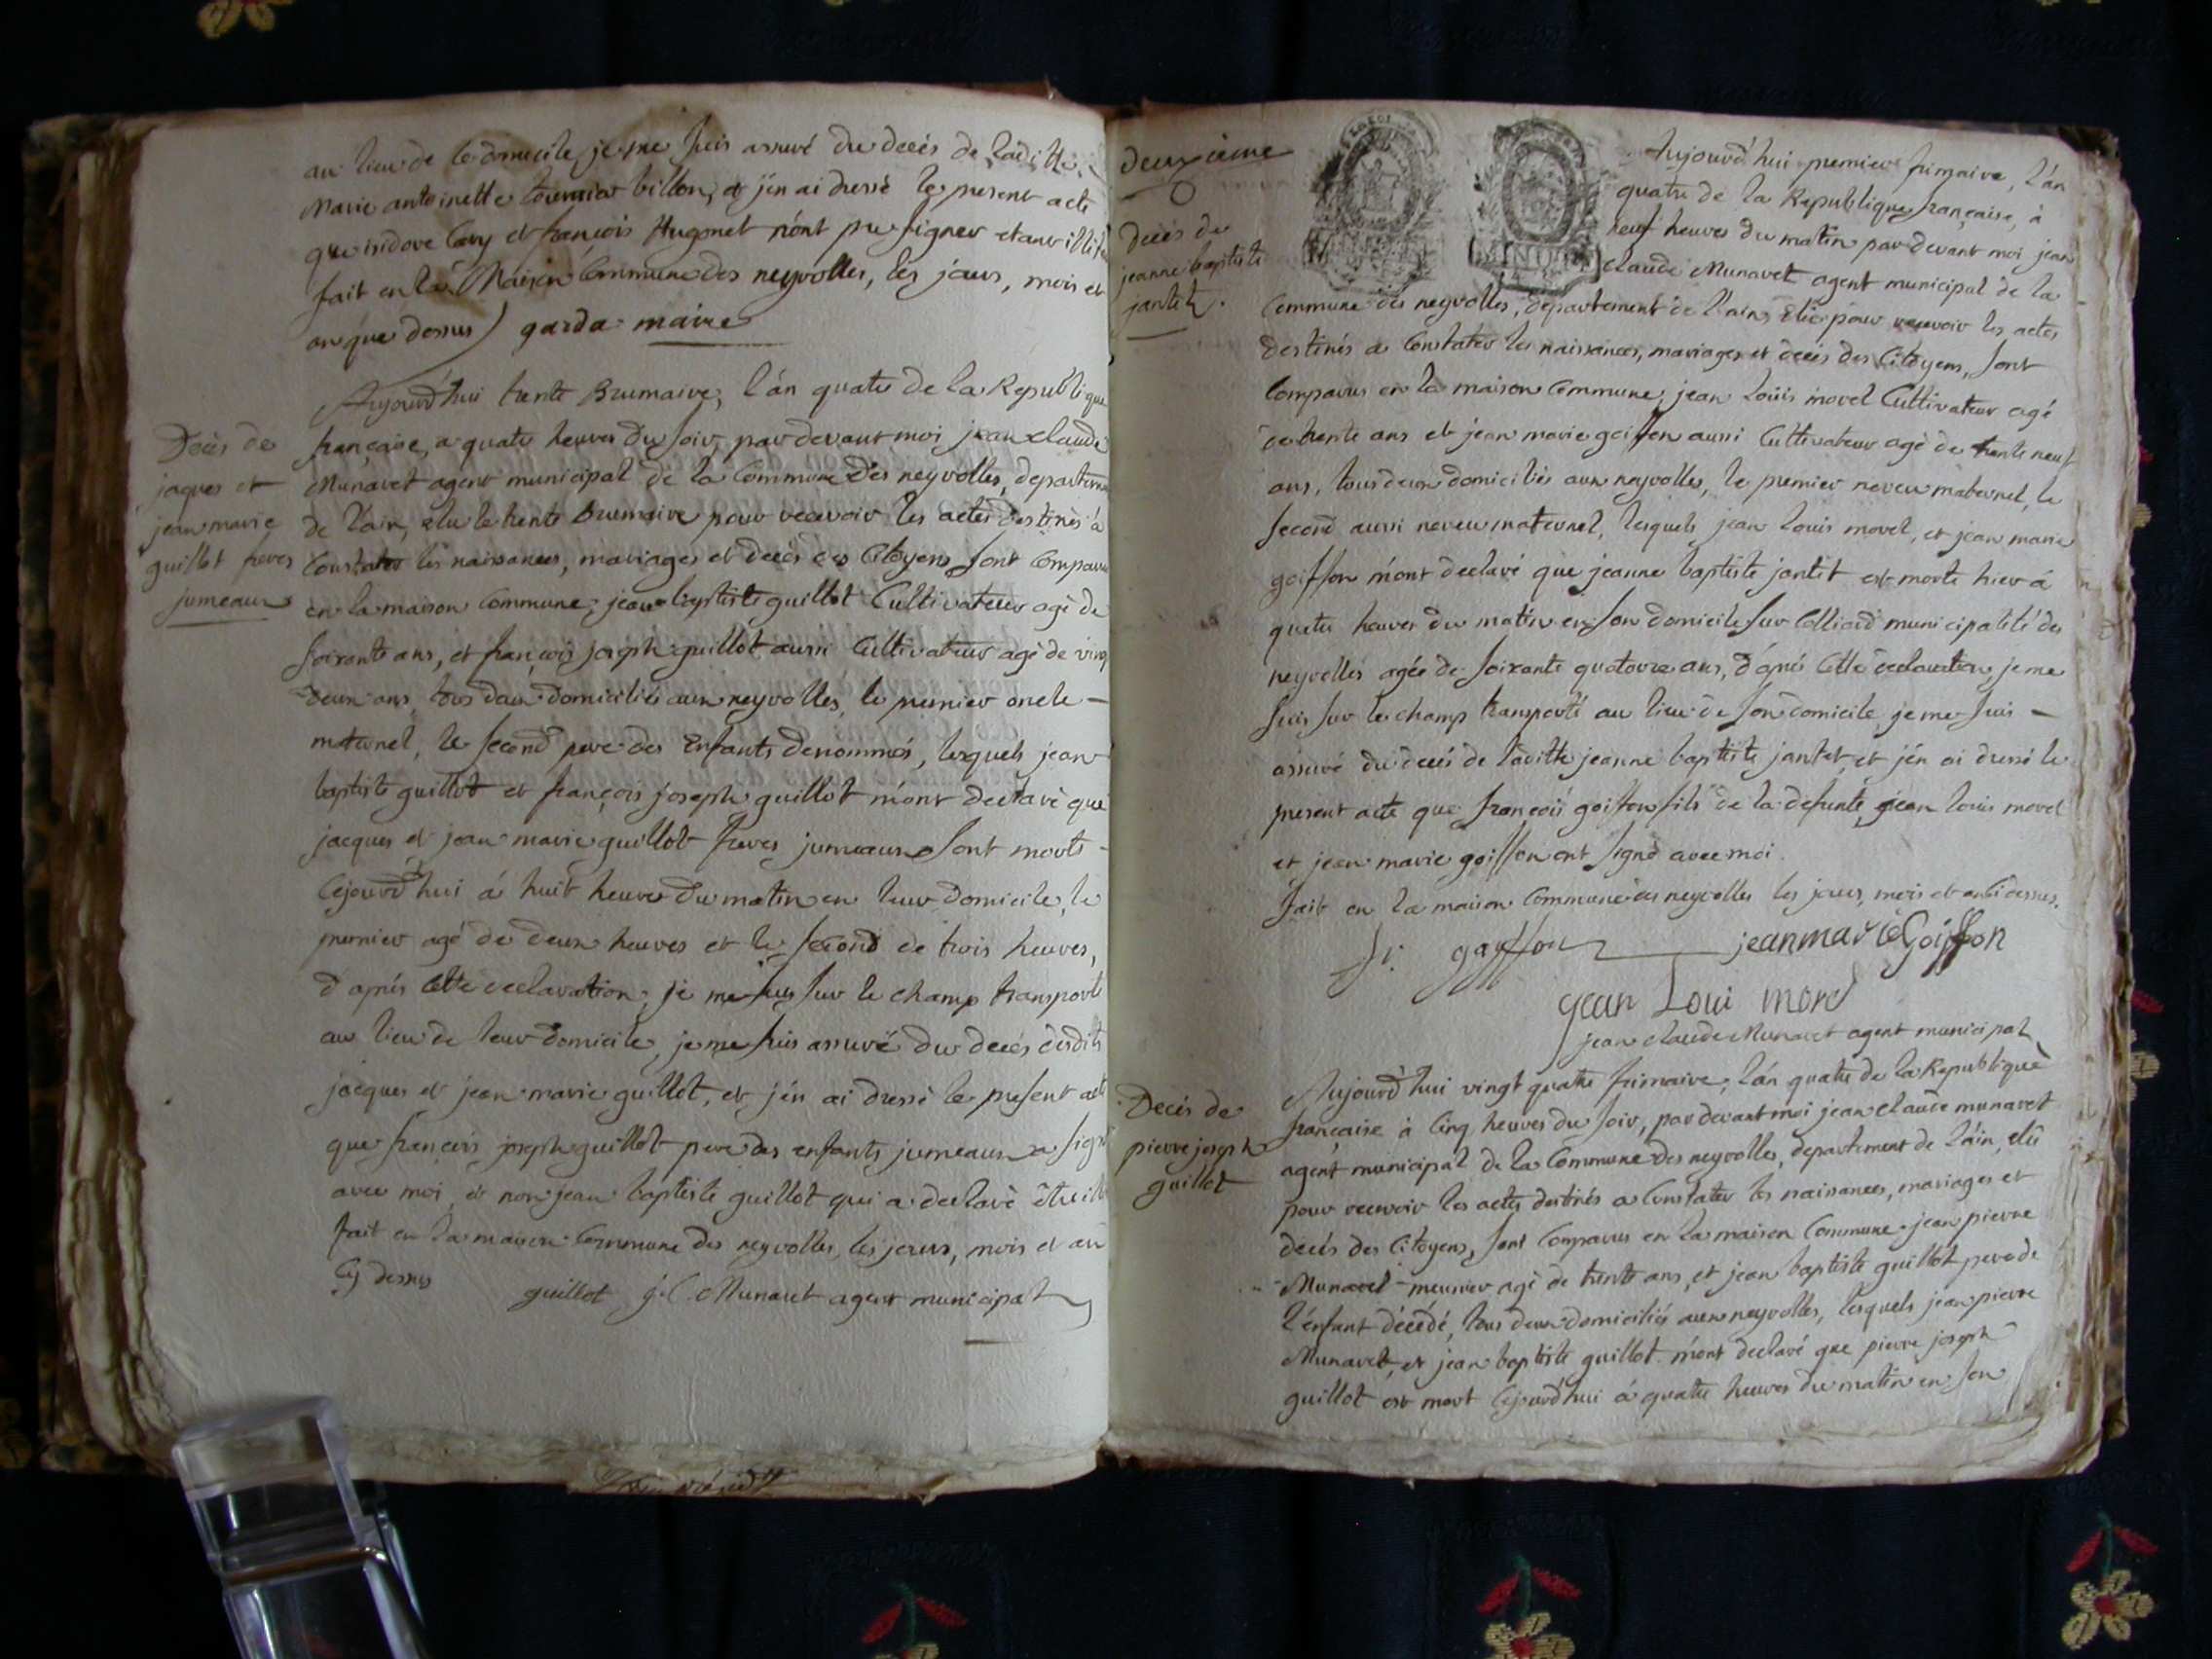 au lieu de le domicile, je me suis assuré du decés de laditte
Marie antoinette tournier billon, et j'en ai dressé le present acte
que isidore Cary et françois Hugonet n'ont pu signer etant illité
fait en la Maison Commune des neyrolles, les jours, mois et
an que dessus garda maire
Aujourd'hui trente Brumaire, l'an quatre de la Republique
Decès de
jaques et
jean marie
guillot freres
jumeaux
française, a quatre heures du soir, par devant moi jean claude
Munavet agent municipal de la Commune des neyrolles, departement
de l'ain, elu le trente Brumaire pour recevoir les actes destinés à
Constater les naissances, mariages et decés des Citoyens sont Comparus
en la maison Commune, jean baptiste guillot Cultivateur agé de
soixante ans, et françois joseph guillot aussi Cultivateur agé de vingt
deux ans, tous deux domiciliés aux neyrolles, le premier oncle
maternel, le second pere des Enfants denommés, lesquels jean
baptiste guillot et françois joseph guillot m'ont declaré que
jacques et jean marie guillot freres jumeaux sont morts
Cejourd'hui á huit heures du matin en leur domicile, le
premier agé de deux heures et le second de trois heures,
d'aprés Cette declaration, je me suis sur le champ transporté
au lieu de leur domicile, je me suis assuré du decés desdits
jacques et jean marie guillot, et j'en ai dressé le present acte
que françois joseph guillot pere des enfants jumeaux a signé
avec moi, et non jean baptiste guillot qui a declaré être illi
fait en la maison Commune des neyrolles, les jours, mois et an
Cy dessus
guillot j. C. Munavet agent municipal
deuxieme
Decès de
jeanne baptiste
jantet.
MINUTE
Aujourd'hui premier frimaire, l'an
quatre de la Republique française, à
neuf heures du matin par devant moi jean
claude Munavet agent municipal de la
Commune des neyrolles, departement de l'ain, élu pour recevoir les actes
destinés a Constater les naissances, mariages et decés des Citoyens, sont
Comparus en la maison Commune, jean Louis morel Cultivateur agé
de trente ans et jean marie goiffon aussi Cultivateur agé de trente neuf
ans, tous deux domiciliés aux neyrolles, le premier neveu maternel, le
second aussi neveu maternel, lesquels jean louis morel, et jean marie
goiffon m'ont declaré que jeanne baptiste jantet est morte hier á
quatre heures du matin en son domicile sur Colliard municipalité des
neyrolles agée de soixante quatorze ans, d'aprés Cette declaration, je me
suis sur le champ transporté au lieu de son domicile je me suis
assuré du decés de laditte jeanne baptiste jantet, et j'en ai dressé le
present acte que françois goiffon fils de la defunte, jean louis morel
et jean marie goiffon ont signé avec moi.
Fait en la maison Commune des neyrolles les jours, mois et an ci dessus.
fr. gaffon jeanmarie Goiffon
jean Loui morel
jean claude Munavet agent municipal
Decés de
pierre joseph
guillot
Aujourd'hui vingt quatre frimaire, l'an quatre de la Republique
française à Cinq heures du soir, par devant moi jean claude munavet
agent municipal de la Commune des neyrolles, departement de l'ain, élu
pour recevoir les actes destinés a Constater les naissances, mariages et
decés des Citoyens, sont Comparus en la maison Commune jean pierre
Munavet meunier agé de trente ans, et jean baptiste guillot pere de
l'enfant décédé, tous deux domiciliés aux neyrolles, lesquels jean pierre
Munavet, et jean baptiste guillot m'ont declaré que pierre joseph
guillot est mort Cejourd'hui á quatre heures du matin en son